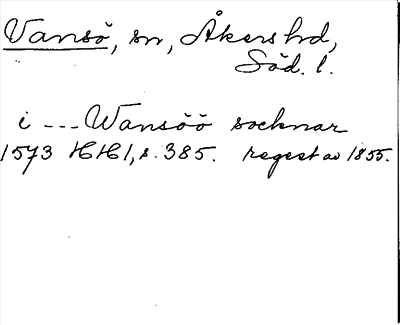 Vansö, sn, Åkers hd,
Söd. l.
i --- Wansöö socknar
1573 HH1, s. 385. regest av 1855.